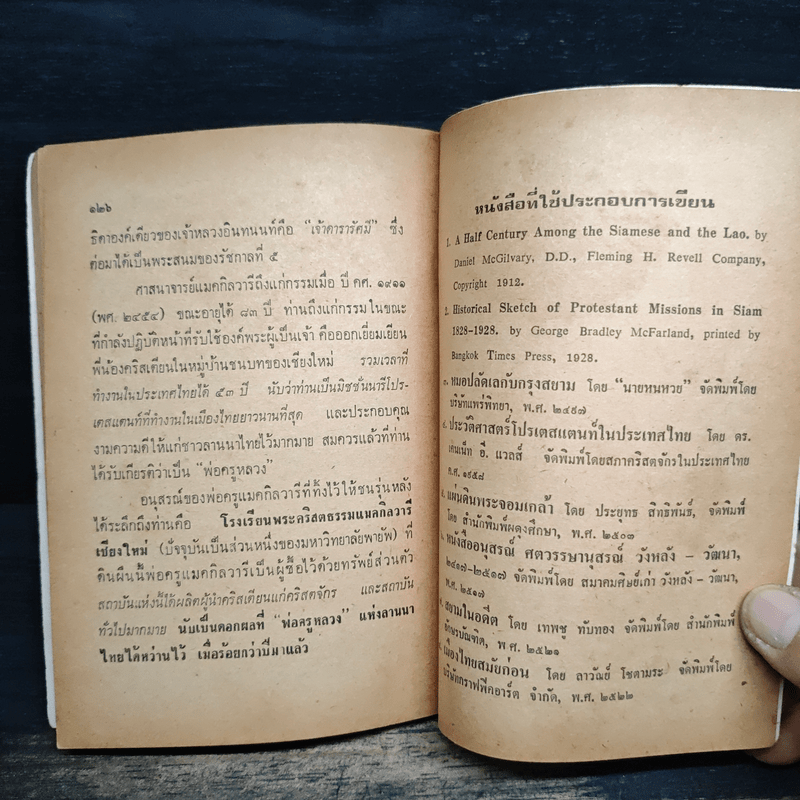 ๑๒๖
ธิดาองค์เดียวของเจ้าหลวงอินทนนท์คือ "เจ้าดารารัศมี" ซึ่ง
ต่อมาได้เป็นพระสนมของรัชกาลที่ ๕
ศาสนาจารย์แมคกิลวารีถึงแก่กรรมเมื่อ ปี คศ. ๑๙๑๑
(พศ. ๒๔๕๔) ขณะอายุได้ ๘๓ ปี ท่านถึงแก่กรรมในขณะ
ที่กำลังปฏิบัติหน้าที่รับใช้องค์พระผู้เป็นเจ้า คือออกเยี่ยมเยียน
พี่น้องคริสเตียนในหมู่บ้านชนบทของเชียงใหม่ รวมเวลาที่
ทำงานในประเทศไทยได้ ๕๓ ปี นับว่าท่านเป็นมิชชั่นนารีโปร-
เตสแตนท์ที่ทำงานในเมืองไทยยาวนานที่สุด และประกอบคุณ
งามความดีให้แก่ชาวลานนาไทยไว้มากมาย สมควรแล้วที่ท่าน
ได้รับเกียรติว่าเป็น "พ่อครูหลวง"
อนุสรณ์ของพ่อครูแมคกิลวารีที่ทิ้งไว้ให้ชนรุ่นหลัง
ได้ระลึกถึงท่านคือ โรงเรียนพระคริสตธรรมแมคกิลวารี
เชียงใหม่ (ปัจจุบันเป็นส่วนหนึ่งของมหาวิทยาลัยพายัพ) ที่
ดินผืนนี้พ่อครูแมคกิลวารีเป็นผู้ซื้อไว้ด้วยทรัพย์ส่วนตัว
สถาบันแห่งนี้ได้ผลิตผู้นำคริสเตียนแก่คริสตจักร และสถาบัน
ทั่วไปมากมาย นับเป็นดอกผลที่ "พ่อครูหลวง" แห่งลานนา
ไทยได้หว่านไว้ เมื่อร้อยกว่าปีมาแล้ว
หนังสือที่ใช้ประกอบการเขียน
1. A Half Century Among the Siamese and the Lao. by
Daniel McGilvary, D.D., Fleming H. Revell Company,
Copyright 1912.
2. Historical Sketch of Protestant Missions in Siam
1828-1928. by George Bradley McFarland, printed by
Bangkok Times Press, 1928.
๓. หมอปลัดเลกับกรุงสยาม โดย "นายหนหวย" จัดพิมพ์โดย
บริษัทแพร่พิทยา, พ.ศ. ๒๔๙๗
๔. ประวัติศาสตร์โปรเตสแตนท์ในประเทศไทย โดย ดร.
เคนเน็ท อี. แวลส์ จัดพิมพ์โดยสภาคริสตจักรในประเทศไทย
ค.ศ. ๑๙๕๘
แผ่นดินพระจอมเกล้า โดย ประยุทธ สิทธิพันธ์, จัดพิมพ์
โดย สำนักพิมพ์ผดุงศึกษา, พ.ศ. ๒๕๐๓
หนังสืออนุสรณ์ ศตวรรษานุสรณ์ วังหลัง – วัฒนา,
๒๔๑๗–๒๕๑๗ จัดพิมพ์โดย สมาคมศิษย์เก่า วังหลัง – วัฒนา,
พ.ศ. ๒๕๑๗
สยามในอดีต โดย เทพชู ทับทอง จัดพิมพ์โดย สำนักพิมพ์
อักษรบัณฑิต, พ.ศ. ๒๕๒๑
เมืองไทยสมัยก่อน โดย ลาวัณย์ โชตามระ จัดพิมพ์โดย
บริษัทกราฟฟิคอาร์ต จำกัด, พ.ศ. ๒๕๒๒